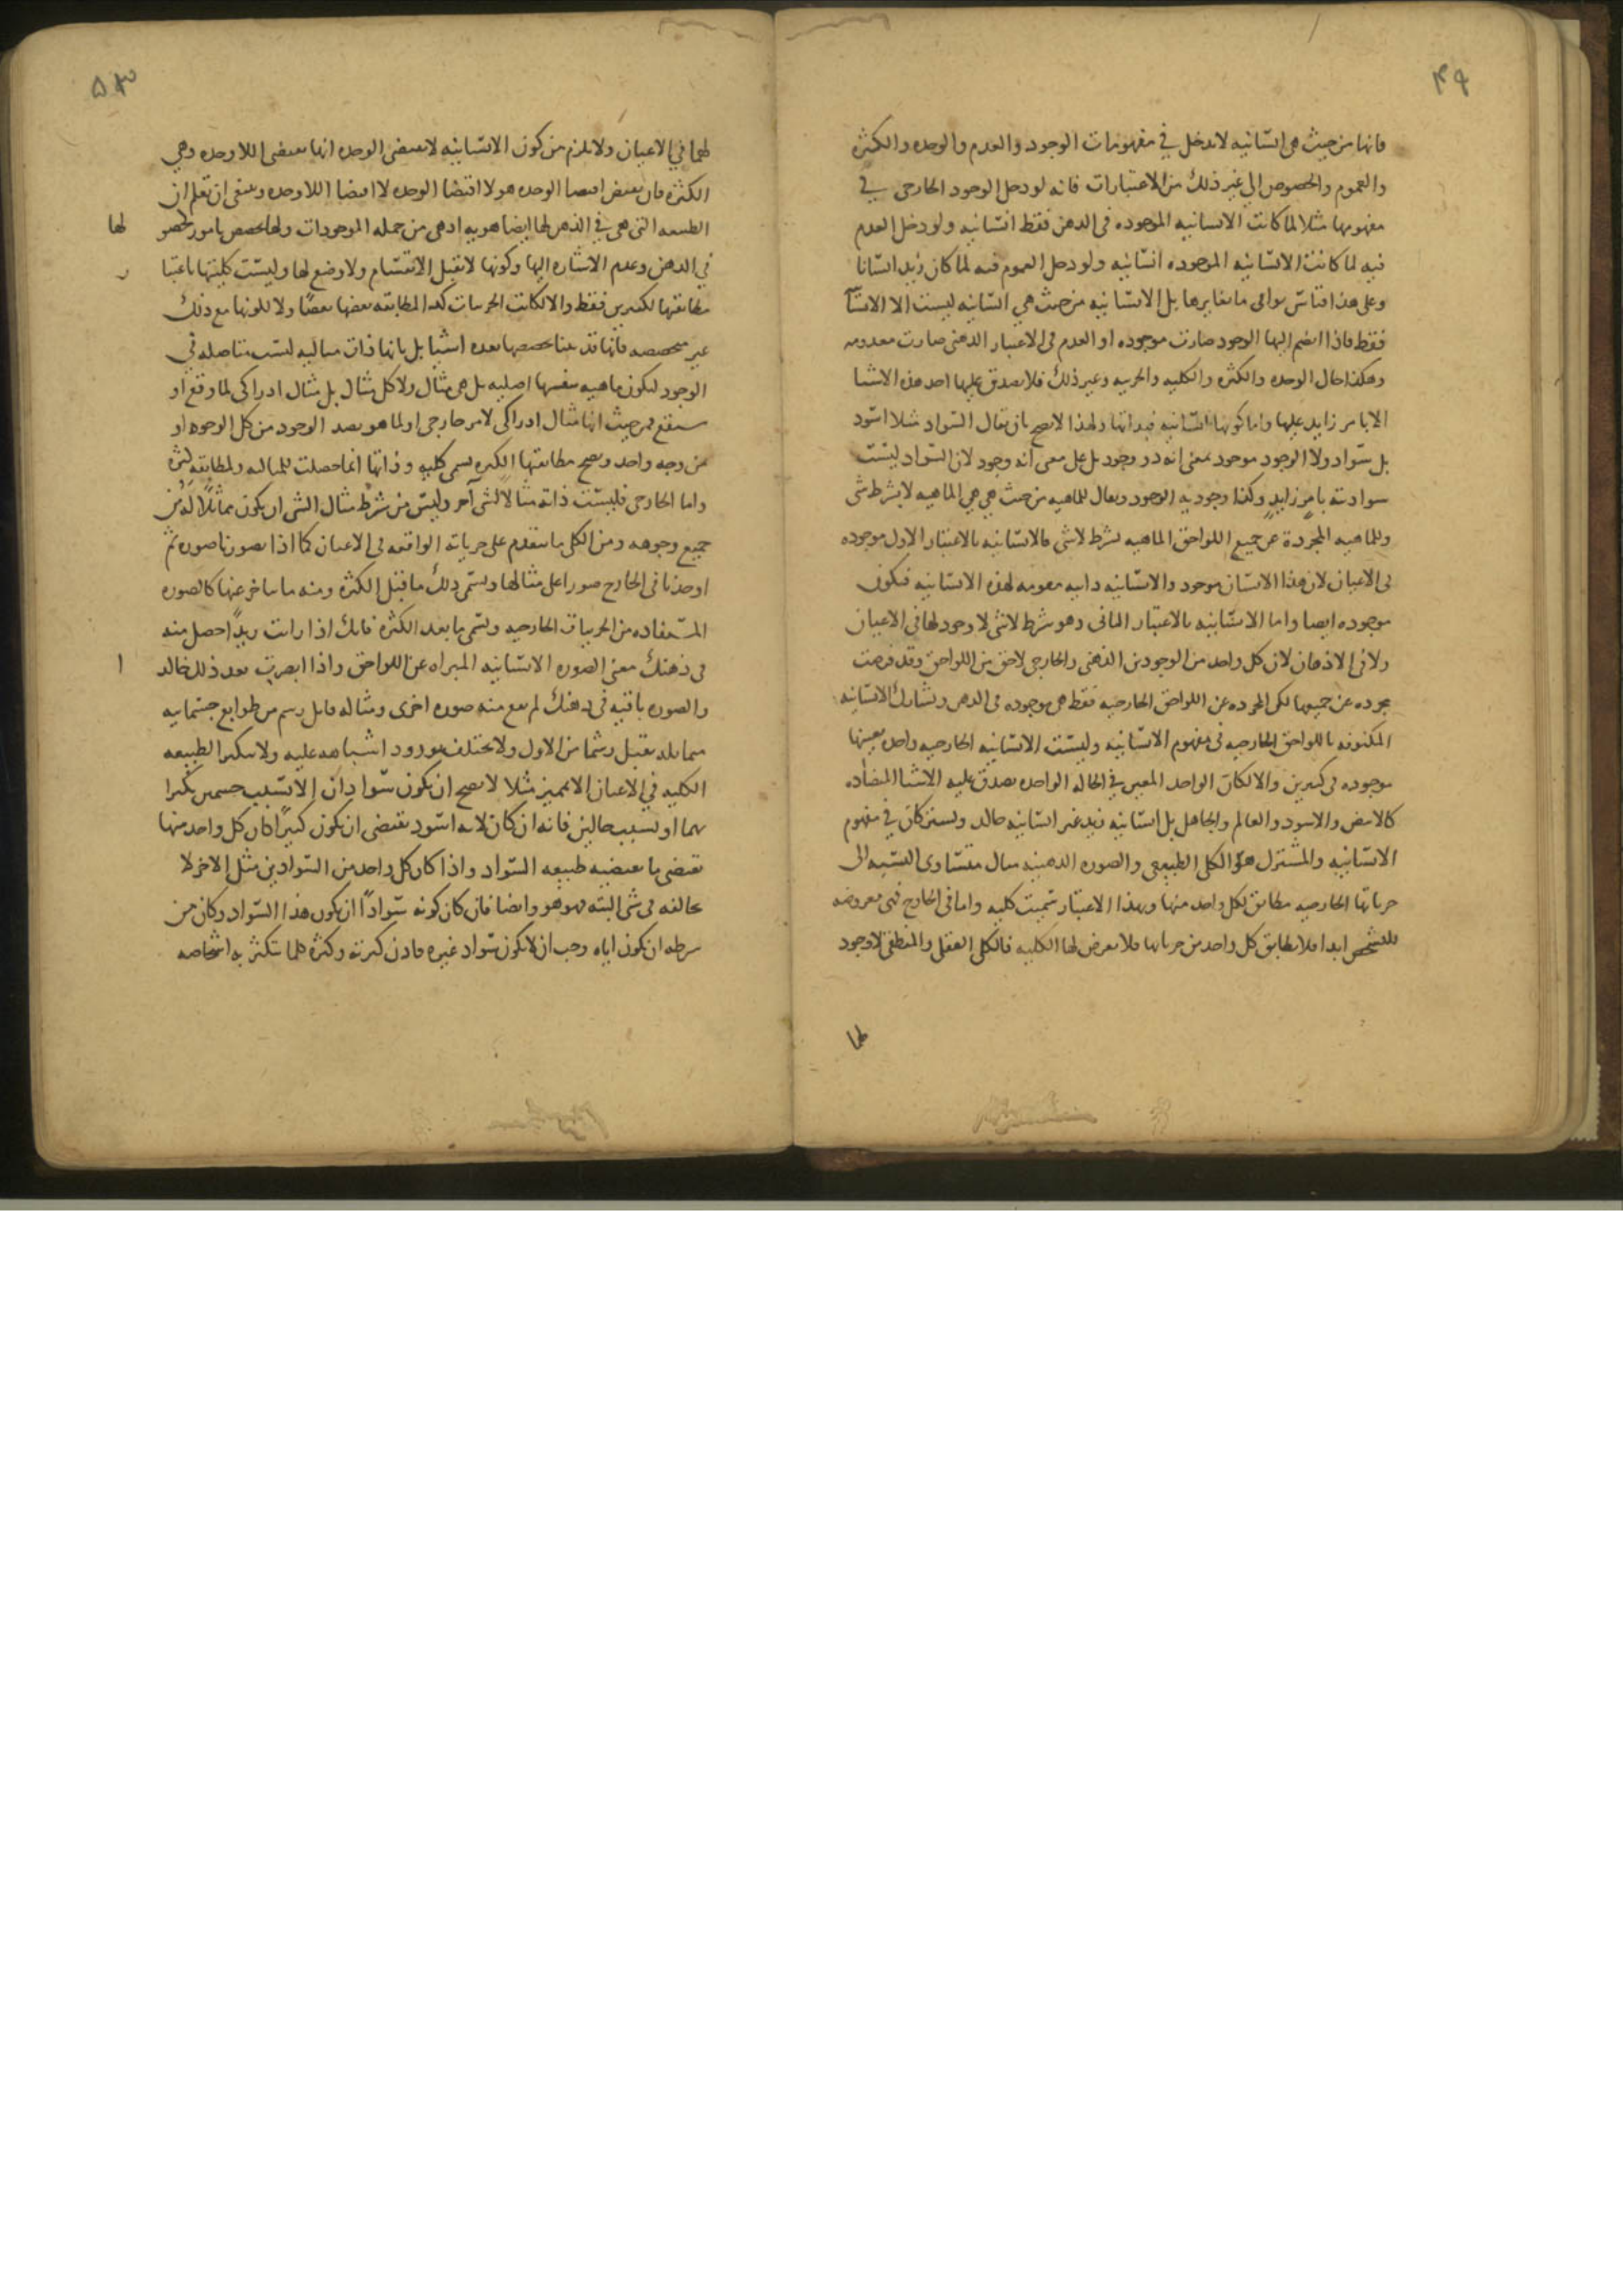 ٤٩
فانها من حيث هى انسانيه لا يدخل في مفهومات الوجود والعدم والوحده والكثرة
والعموم والخصوص الى غير ذلك من الاعتبارات فانه لو دخل الوجود الخارجى في
مفهومها مثلا لما كانت الانسانيه الموجوده فى الذهن فقط انسانيه ولو دخل العدم
فيه لما كانت الانسانيه الموجوده انسانيه ولو دخل العموم فيه لما كان زيد انسانا
وعلى هذا قياس بواقى ما يغايرها بل الانسانيه من حيث هي انسانيه ليست الا الانسا
فقط فاذا انضم اليها الوجود صارت موجوده او العدم فى الاعتبار الذهنى صارت معدومه
وهكذا حال الوحده والكثره والكليه والجزييه وغير ذلك فلا يصدق عليها احد هذه الاشيا
الا بامر زايد عليها واما كونها انسانيه فبذاتها ولهذا لا يصح بان يقال السواد مثلا اسود
بل سواد ولا الوجود موجود بمعنى انه ذو وجود بل على معنى انه وجود لان السواد ليست
سواديته بامر زايد وكذا وجوديه الوجود ويقال للماهيه من حيث هي هي الماهيه لا بشرط شى
وللماهيه المجردة عن جميع اللواحق الماهيه بشرط لا شى فالانسانيه بالاعتبار الاول موجوده
فى الاعيان لان هذا الانسان موجود والانسانيه ذاتيه مقومه لهذه الانسانيه فيكون
موجوده ايضا واما الانسانيه بالاعتبار الثانى وهو شرط لا شى لا وجود لها فى الاعيان
ولا فى الاذهان لان كل واحد من الوجودين الذهنى والخارجى لاحق من اللواحق وقد فرضت
مجرده عن جميعها لكن المجرده عن اللواحق الخارجيه فقط هى موجوده فى الذهن وتشارك الانسانيه
المكنوفه باللواحق الخارجيه فى مفهوم الانسانيه وليست الانسانيه الخارجيه واحده بعينها
موجوده فى كثيرين والا لكان الواحد المعين في الحاله الواحده يصدق عليه الاشيا المتضاده
كالابيض والاسود والعالم والجاهل بل انسانيه زيد غير انسانيه خالد ويشتركان في مفهوم
الانسانيه والمشترك هو الكلى الطبيعى والصوره الذهنيه مثال متساوى النسبه الى
جزياتها الخارجيه مطابق لكل واحد منها وبهذا الاعتبار سميت كليه واما فى الخارج فهى معروضه
للتشخص ابدا فلا يطابق كل واحد من جزياتها فلا يعرض لها الكليه فالكلى العقلى والمنطقى لا وجود
لها
٥٣
لهما في الاعيان ولا يلزم من كون الانسانيه لا تقتضى الوحده انها تقتضى اللاوحده وهي
الكثره فان نقيض اقتضا الوحده هو لا اقتضا الوحده لا اقتضا اللاوحده وينبغى ان تعلم ان
الطبيعه التى هى في الذهن لها ايضا هويه اذ هى من جمله الموجودات ولها تخصص بامور كحصو
لها
في الذهن وعدم الاشاره اليها وكونها لا تقبل الانقسام ولا وضع لها وليست كليتها باعتبا
ر
مطابقتها لكثيرين فقط والا لكانت الجزيات كذا لمطابقه بعضها بعضا ولا لكونها مع ذلك
غير متخصصه فانها قد بينا تخصصها بعده اشيا بل بانها ذات مثاليه ليست متاصله في
الوجود لتكون ماهيه بنفسها اصليه بل هى مثال ولا كل مثال بل مثال ادراكى لما وقع او
سيقع فمن حيث انها مثال ادراكى لامر خارجى او لما هو بصدد الوجود من كل الوجوه او
من وجه واحد ويصح مطابقتها الكثيره تسمى كليه وذاتها انما حصلت للمثاليه ولمطابقه كثره
واما الخارجى فليست ذاته مثالا لشى آخر وليس من شرط مثال الشى ان يكون مماثلا له من
جميع وجوهه ومن الكلى ما يتقدم على جزياته الواقعه فى الاعيان كما اذا تصورنا صوره ثم
اوجدنا فى الخارج صورا على مثالها ويسمى ذلك ما قبل الكثره ومنه ما يتاخر عنها كالصوره
المستفاده من الجزيات الخارجيه ويسمى ما بعد الكثره فانك اذا رايت زيدا حصل منه
فى ذهنك معنى الصوره الانسانيه المبراه عن اللواحق واذا ابصرت بعد ذلك خالد
ا
والصوره باقيه فى ذهنك لم يقع منه صوره اخرى ومثاله قابل رسم من طوابع جسمانيه
متماثله يقبل رسما من الاول ولا يختلف بورود اشباهه عليه ولا يتكثر الطبيعه
الكليه في الاعيان الا بمميز مثلا لا يصح ان يكون سوادان الا بسبب جسمين تكثرا
بهما او بسبب حالين فانه ان كان لانه اسود يقتضى ان يكون كثيرا كان كل واحد منها
يقتضى ما تقتضيه طبيعه السواد واذا كان كل واحد من السوادين مثل الاخر لا
يخالفه فى شى البته فهو هو وايضا فان كان كونه سوادا ان يكون هذا السواد وكان من
شرطه ان يكون اياه وجب ان لا يكون سواد غيره فاذن كثرته وكثره كلما تتكثر به اشخاصه